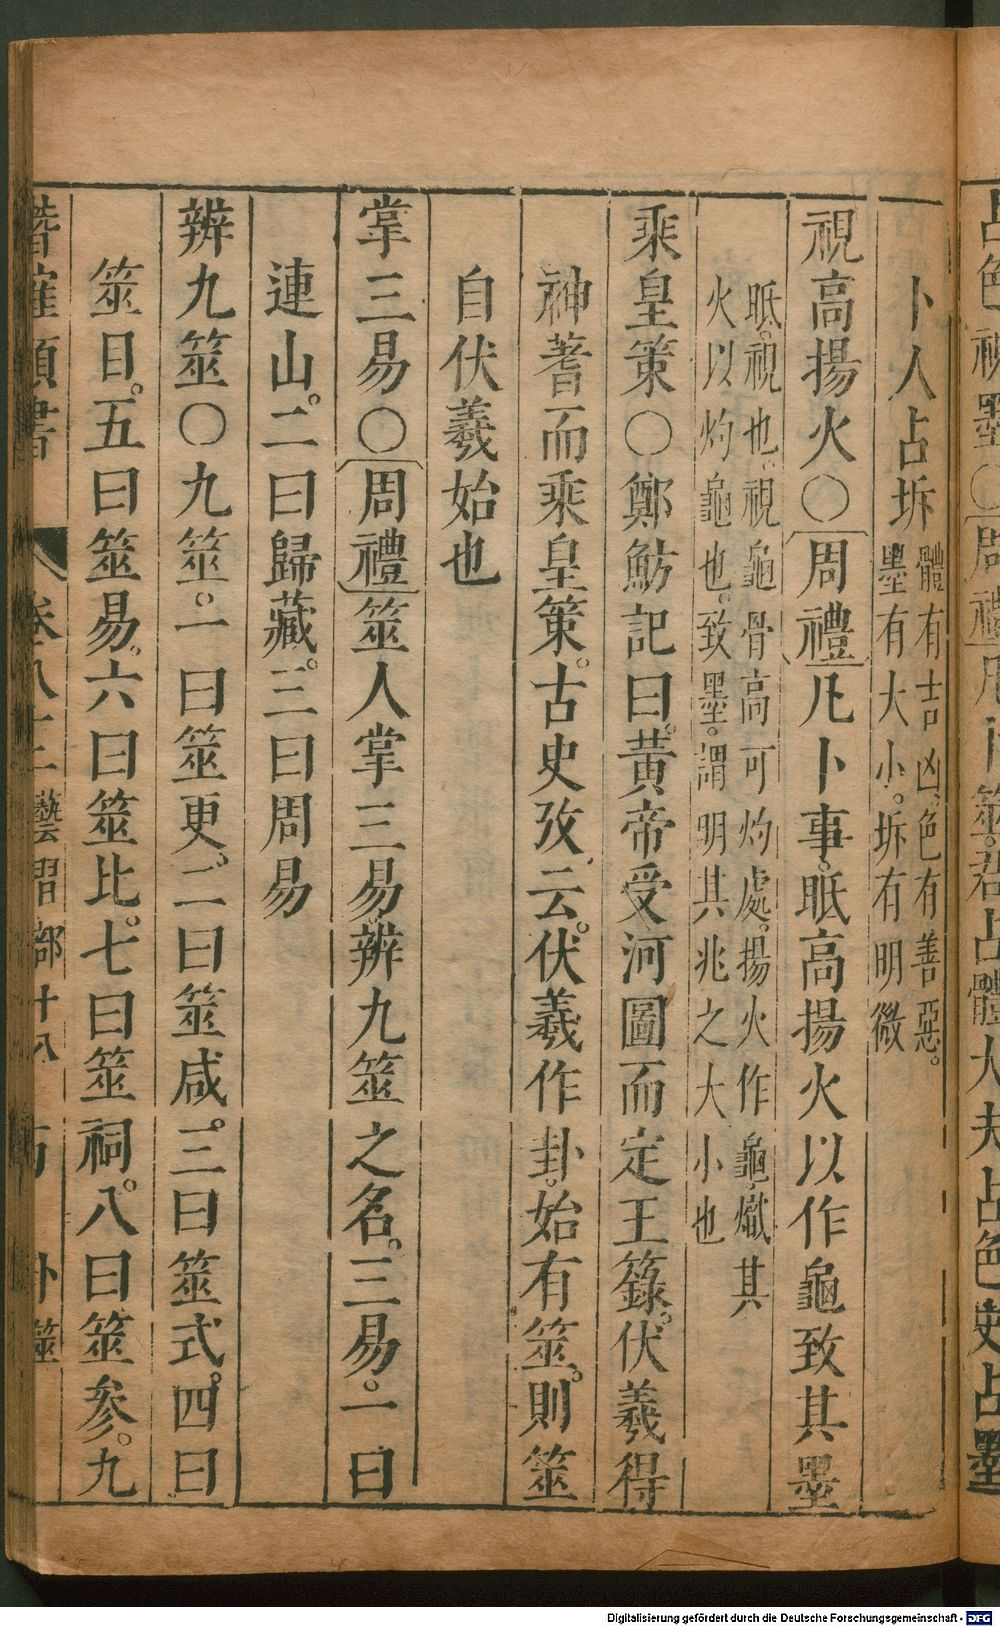 卜人占坼體有吉凶。色有善惡。墨有大小。坼有明微
視高揚火○周禮凡卜事。眡高揚火以作龜致其墨
眡。視也。視龜骨高可灼處。揚火作龜。熾其
火以灼龜也。致墨。謂明其兆之大小也
乘皇策○鄭魴記曰。黃帝受河圖而定王籙。伏羲得
神蓍而乘皇策。古史攷云。伏羲作卦。始有筮。則筮
自伏羲始也
掌三易○周禮筮人掌三易。辨九筮之名。三易。一曰
連山。二曰歸藏。三曰周易
辨九筮○九筮。一曰筮更。二曰筮咸。三曰筮式。四曰
筮目。五曰筮易。六曰筮比。七曰筮祠。八曰筮參。九
潛確類書 卷八十 藝習部十八 卜筮
占色 視墨○周禮凡卜筮。君占體大夫占色史占墨
Digitalisierung gefördert durch die Deutsche Forschungsgemeinschaft - DFG